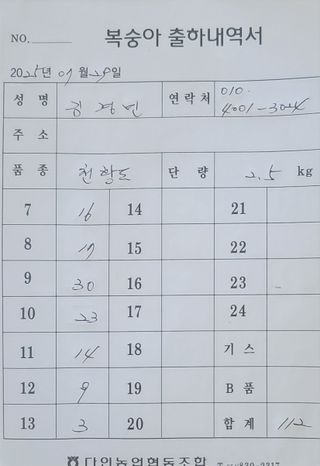 NO.
복숭아 출하내역서
2025년 07월 29일
성 명 김 경 민 연락처 010. 4001-3024
주 소
품 종 단 량 2.5 kg
7 16 14 21
8 17 15 22
9 30 16 23
10 23 17 24
11 14 18 기 스
12 9 19 B 품
13 3 20 합 계 112
다인농업협동조합